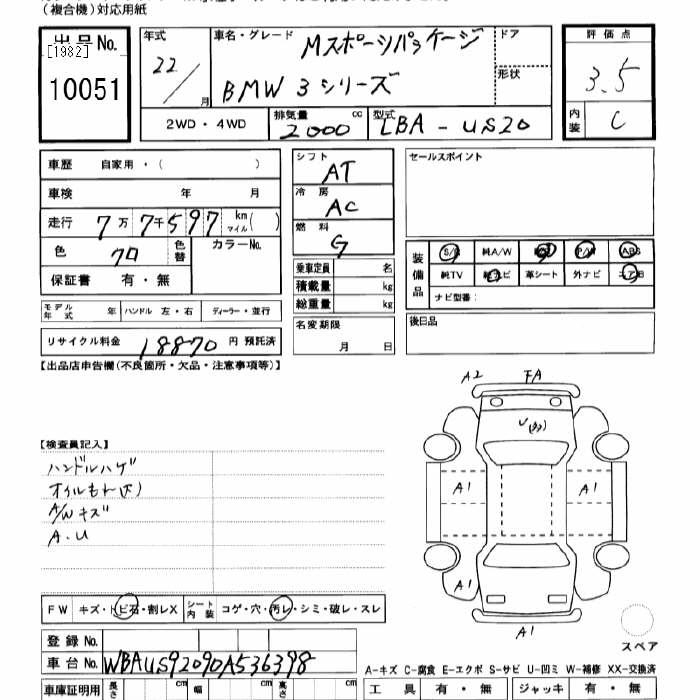 (複合機)対応用紙
出品No.
[1982]
10051
年式 22/ 月
車名・グレード Mスポーツパッケージ
BMW 3シリーズ
ドア
形状
評価点
3.5
内装 C
2WD・4WD
排気量 2000 cc
型式 LBA-US20
車歴 自家用・( )
車検 年 月
走行 7万7千597 km マイル( )
色 クロ 色替 カラーNo.
保証書 有・無
モデル年式 年 ハンドル 左・右 ディーラー・並行
リサイクル料金 18870 円 預託済
シフト AT
冷房 AC
燃料 G
乗車定員 名
積載量 kg
総重量 kg
名変期限
月 日
セールスポイント
装備品
S/R 純A/W P/W ABS
純TV 純ナビ 革シート 外ナビ エアB
ナビ型番:
後日品
【出品店申告欄(不良箇所・欠品・注意事項等)】
A2 FA
U
【検査員記入】
ハンドルハゲ
オイルもれ(大)
A/Wキズ
A.U
A1 A1
A1 A1
A1
スペア
FW キズ・トビ石・割レX シート内装 コゲ・穴・汚レ・シミ・破レ・スレ
登録No.
車台No. WBAUS92090A536398
A-キズ C-腐食 E-エクボ S-サビ U-凹ミ W-補修 XX-交換済
車庫証明用 長さ cm 幅 cm 高さ cm
工具 有・無 ジャッキ 有・無